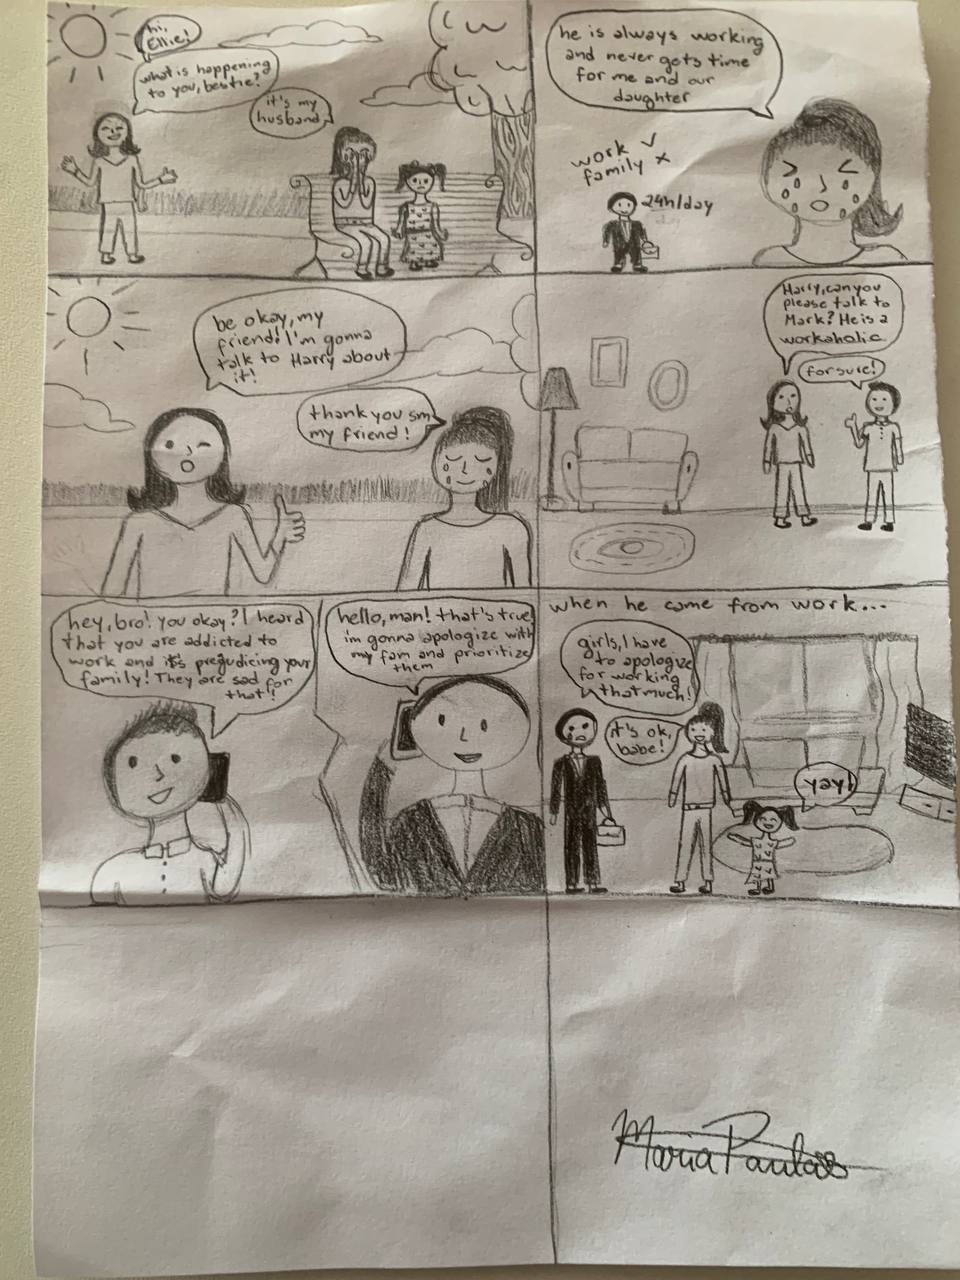 hi,
Ellie!
what is happening
to you, bestie?
it's my
husband
he is always working
and never gets time
for me and our
daughter
work ✓
family x
24h/day
be okay, my
friend! I'm gonna
talk to Harry about
it!
thank you sm
my friend!
Harry, can you
please talk to
Mark? He is a
workaholic
for sure!
hey, bro! you okay? I heard
that you are addicted to
work and it's prejudicing your
family! They are sad for
that!
hello, man! that's true,
i'm gonna apologize with
my fam and prioritize
them
when he come from work...
girls, I have
to apologize
for working
that much!
it's ok,
babe!
yay!
Maria Paula